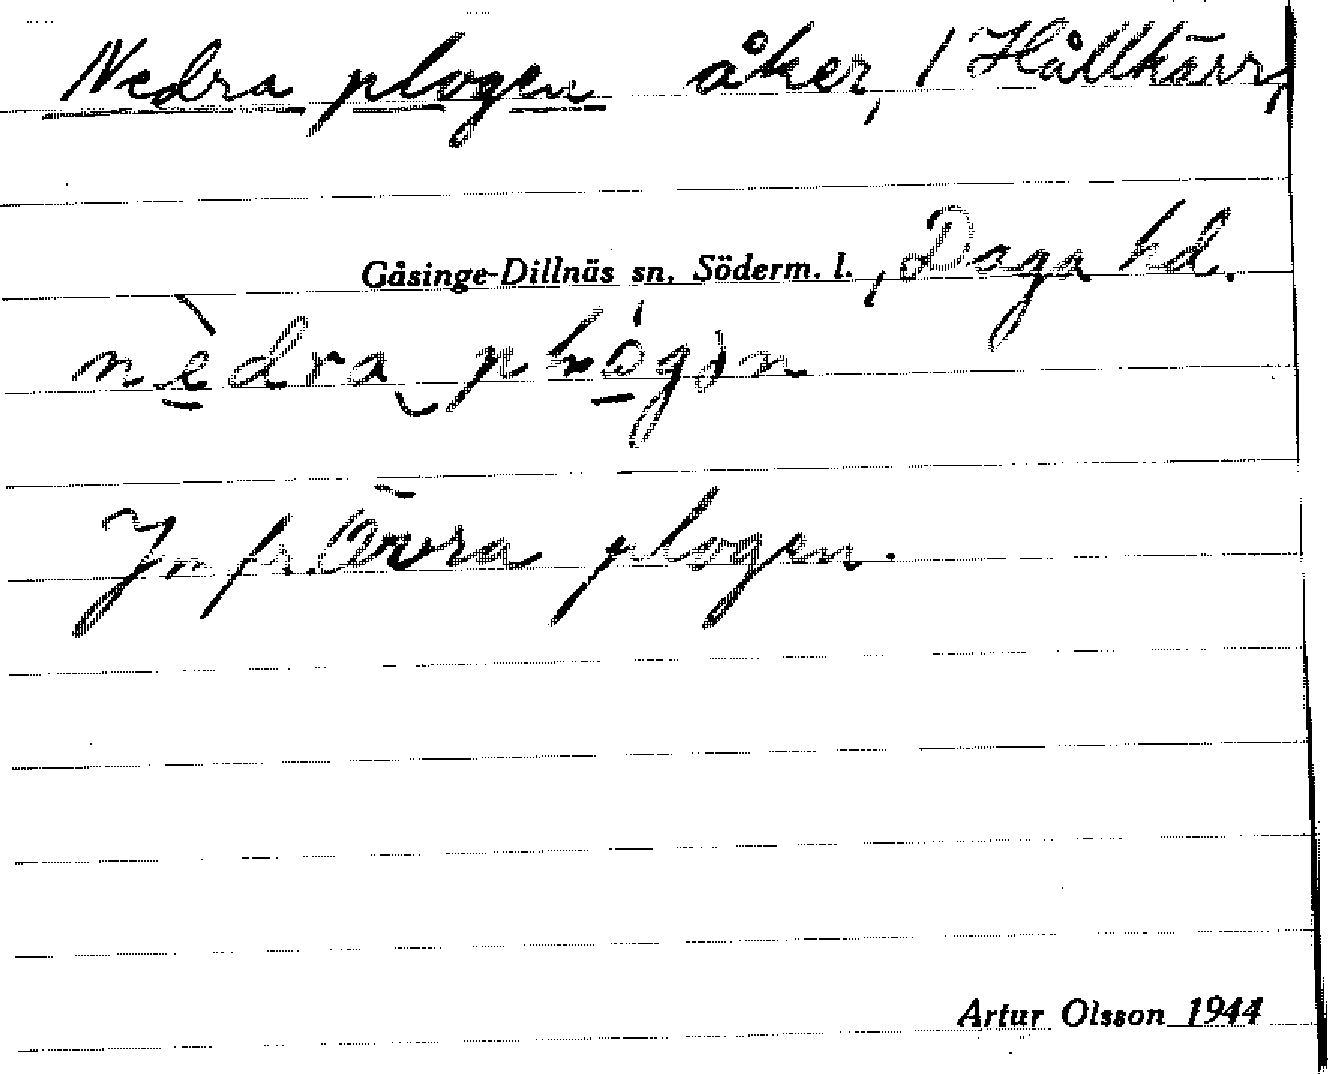 Nedra plogen åker, 1 Hållkärr,
Gåsinge-Dillnäs sn. Söderm. l., Daga hd.
nèdra
Jmfr. Övra plogen.
Artur Olsson 1944